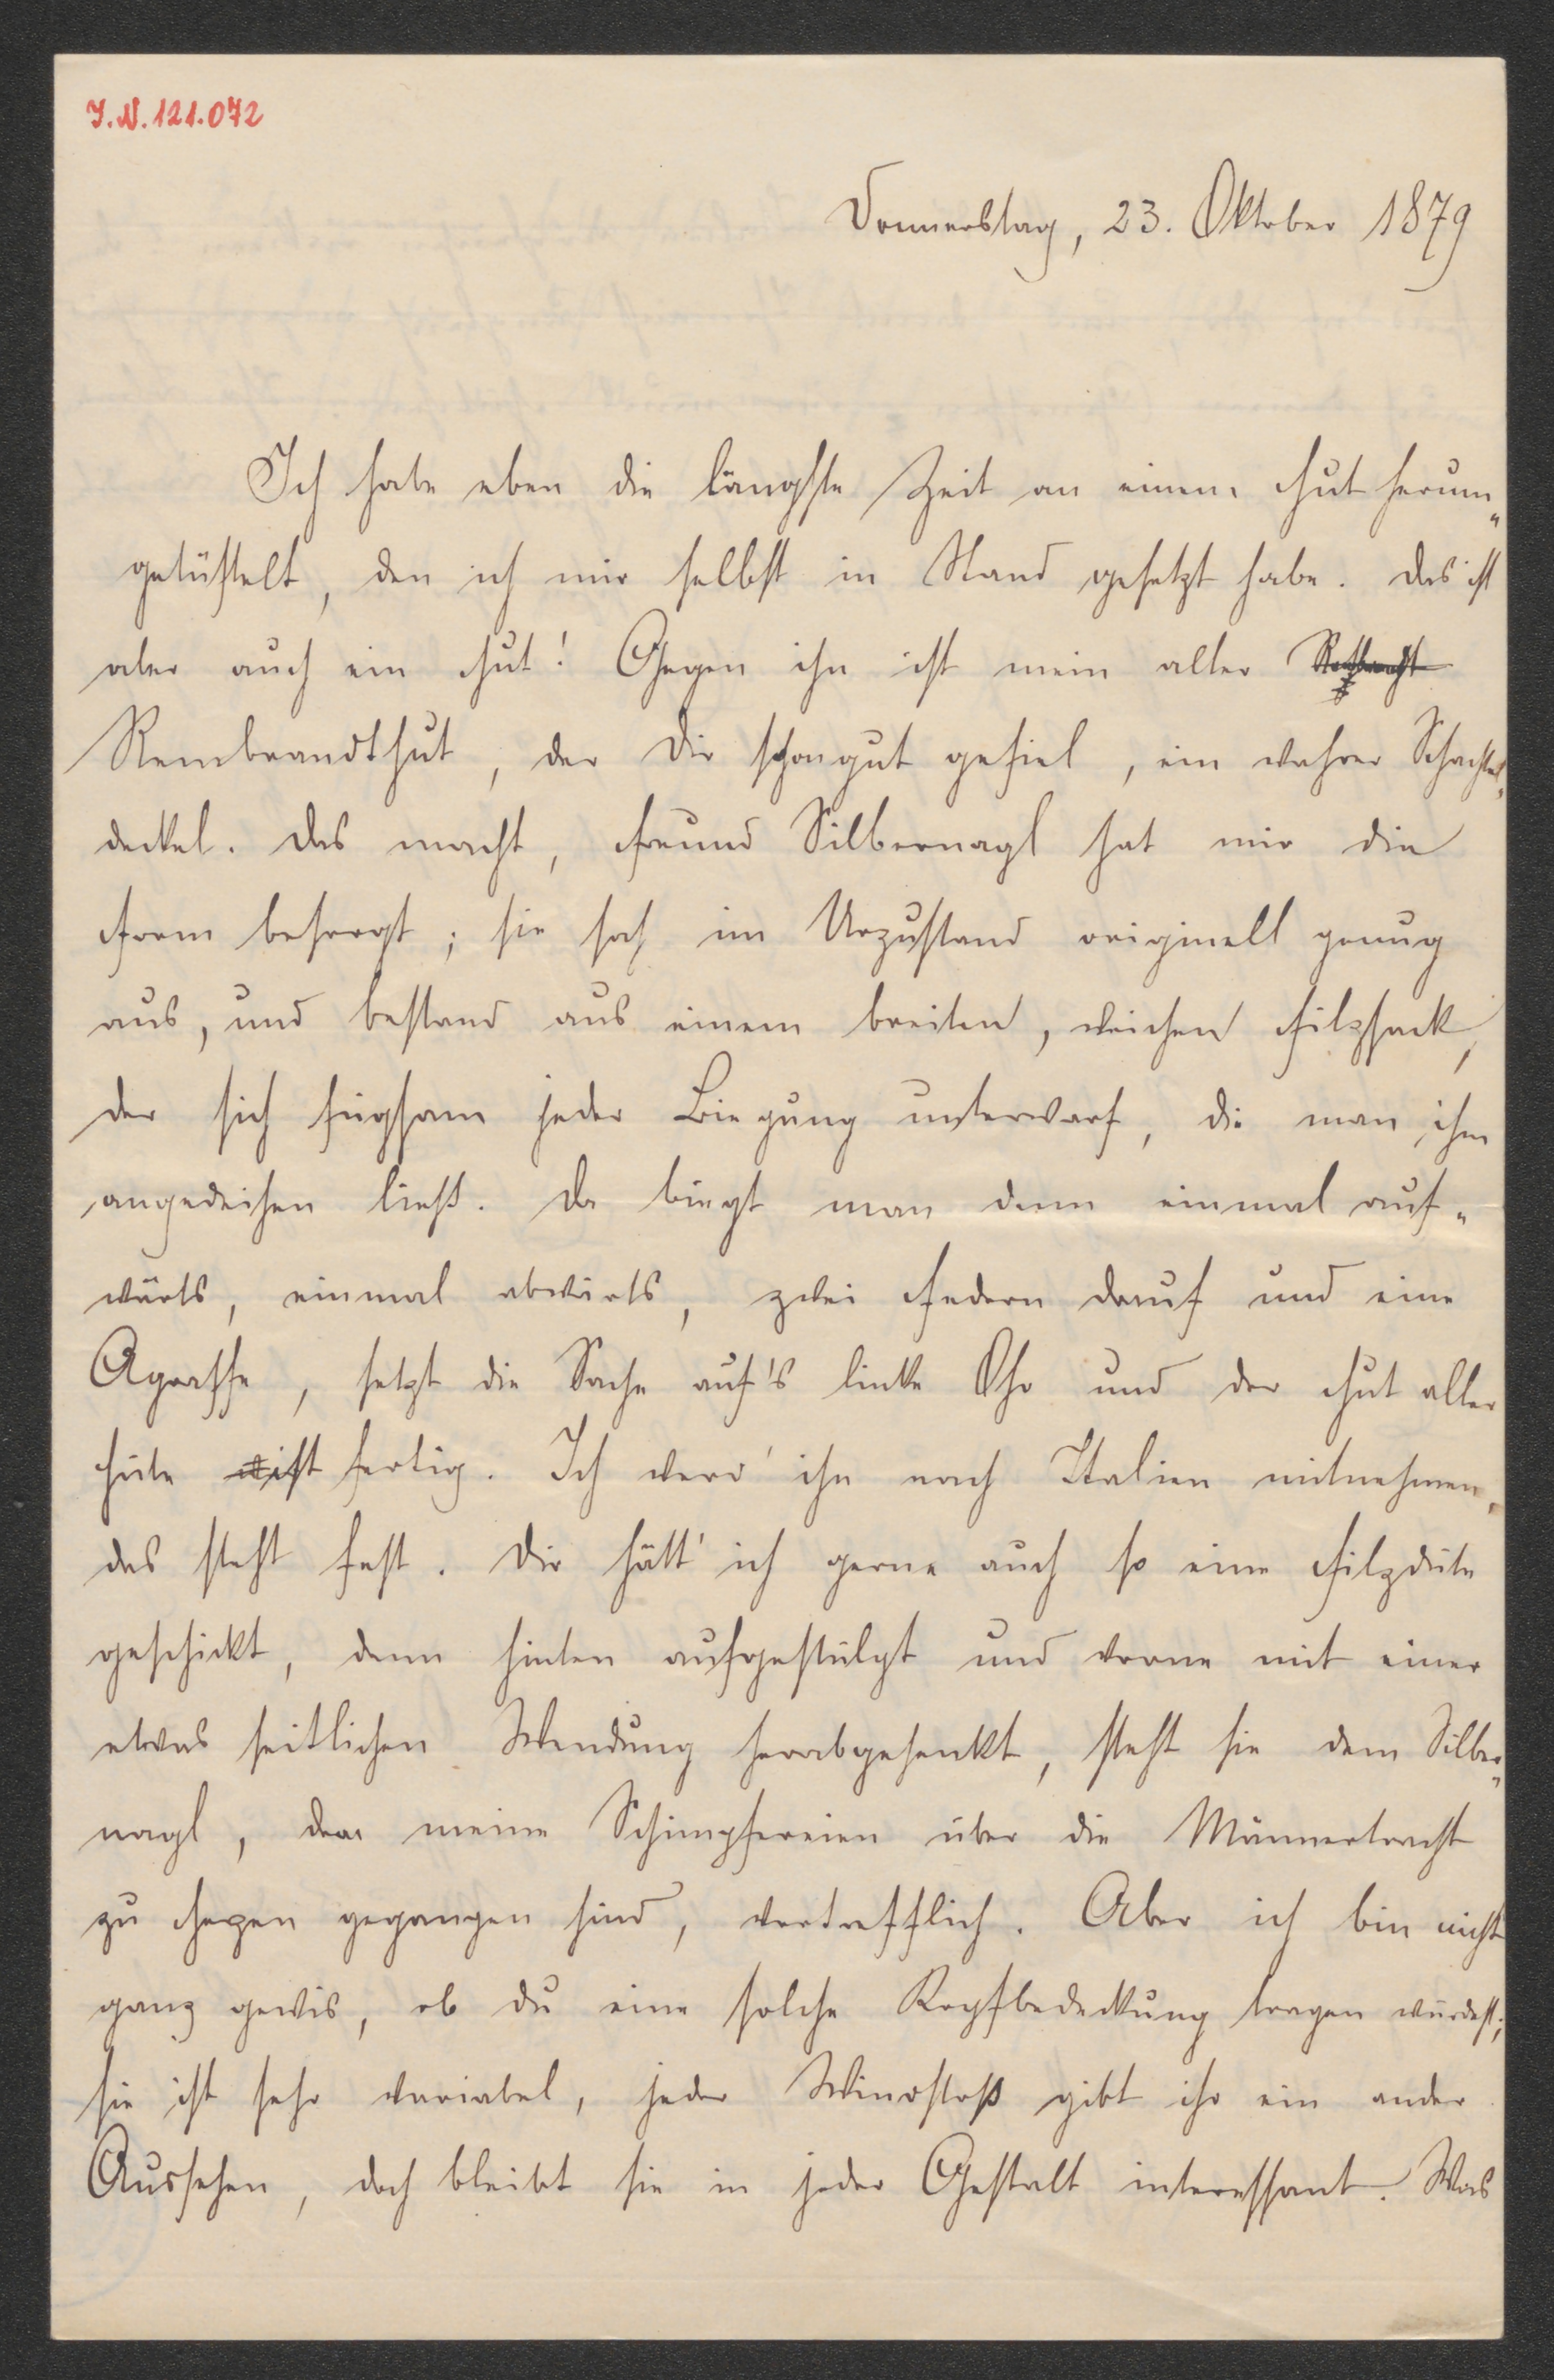 J.N. 121.072
Donnerstag, 23. Oktober 1879
Ich habe eben die längste Zeit an einem Hut herum„
getüftelt, den ich mir selbst in Stand gesetzt habe. Das ist
aber auch ein Hut! Gegen ihn ist mein alter
Rembrandthut, der Dir schon gut gefiel, ein wahrer Schachtel„
deckel. Das macht, Freund Silbernagl hat mir die
Form besorgt; sie sah im Urzustand originell genug
aus, und bestand aus einem breiten, weichen Filzsack,
der sich fügsam jeder Biegung unterwarf, die man ihm
angedeihen ließ. Da biegt man denn einmal auf„
wärts, einmal abwärts, zwei Federn drauf und eine
Agraffe, setzt die Sache auf's linke Ohr und der Hut aller
Hüte ist fertig. Ich werd' ihn nach Italien mitnehmen,
das steht fest. Dir hätt' ich gerne auch so eine Filzdüte
geschickt, denn hinten aufgestülpt und vorne mit einer
etwas seitlichen Wendung herabgesenkt, steht sie dem Silber„
nagl, dem meine Schimpfereien über die Männertracht
zu Herzen gegangen sind, vortrefflich. Aber ich bin nicht
ganz gewis, ob Du eine solche Kopfbedeckung tragen würdest;
sie ist sehr variabel, jeder Windstoß gibt ihr ein ander
Aussehen, doch bleibt sie in jeder Gestalt interessant. Was